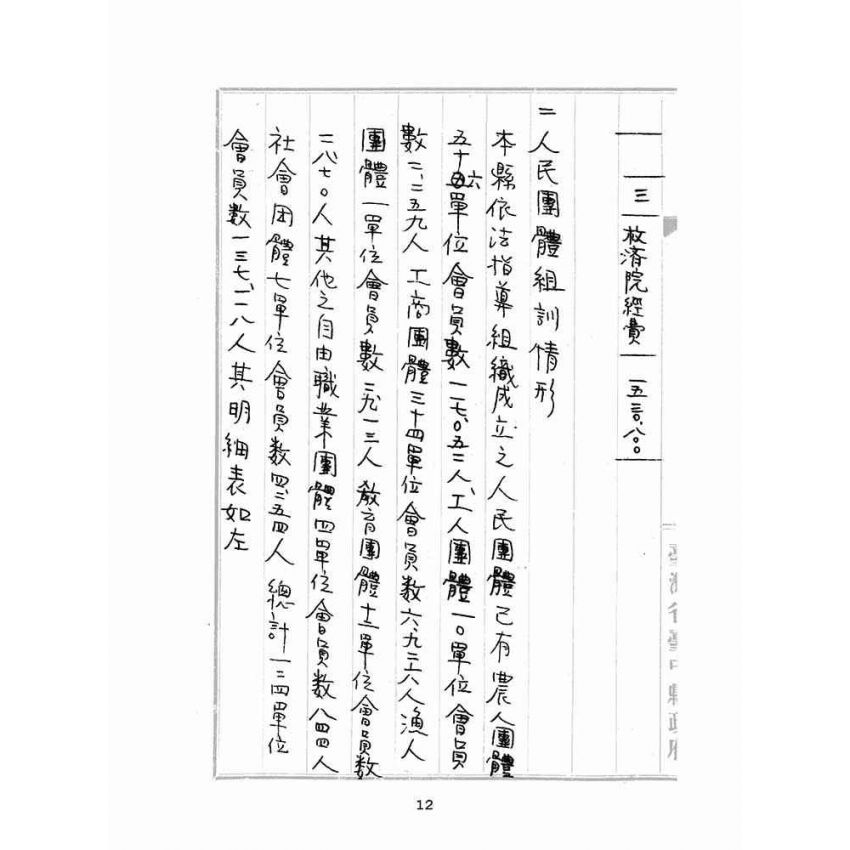 三 救济院經費 一五三〇、八〇
二人民團體組訓情形
本縣依法指導組織成立之人民團體已有農人團體
五十六單位會員數一一七、〇五二人、工人團體一〇單位會員
數二、二五九人工商團體三十四單位會員数六、九三六人漁人
團體一單位會員數二、九一三人教育團體十二單位會員数
二、八七〇人其他之自由職業團體四單位會員数八四四人
社會团體七單位會員数四、二五四人總計一二四單位
會員数一三七、一二八人其明細表如左
12